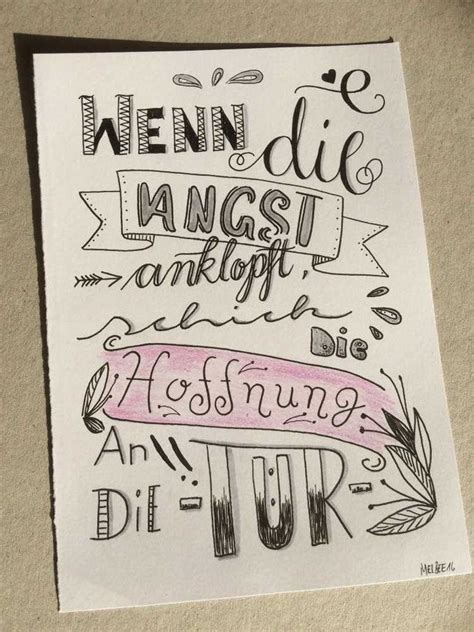 WENN die
ANGST
anklopft,
schick Die
Hoffnung
An
DiE -TÜR-
MELBEE16